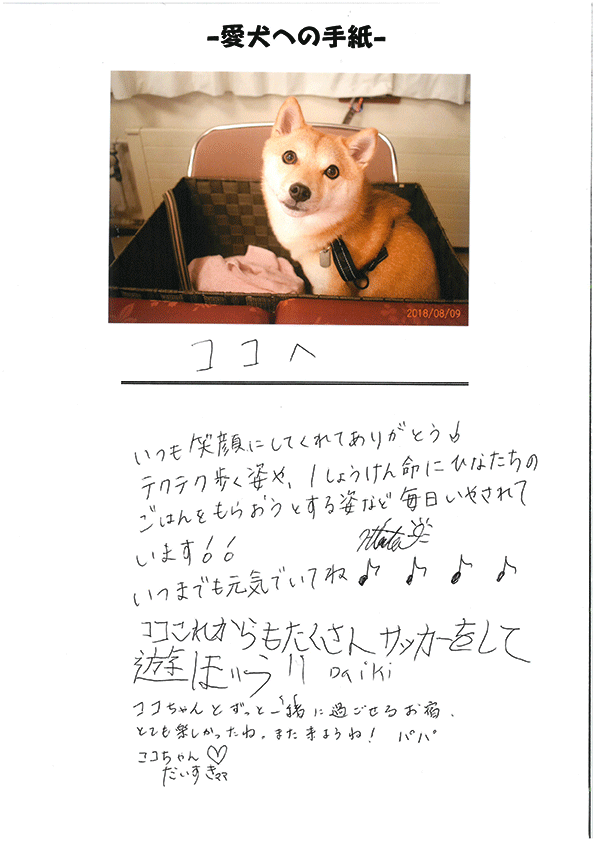 -愛犬への手紙-
2018/08/09
ココへ
いつも笑顔にしてくれてありがとう♪
テクテク歩く姿や、1しょうけん命にひなたちの
ごはんをもらおうとする姿など毎日いやされて
います!!
いつまでも元気でいてね♪ ♪ ♪ ♪
ココこれからもたくさんサッカーをして
遊ぼう!! Daiki
ココちゃんとずっと一緒に過ごせるお宿、
とても楽しかったね。また来ようね! パパ
ココちゃん♡
だいすき ママ